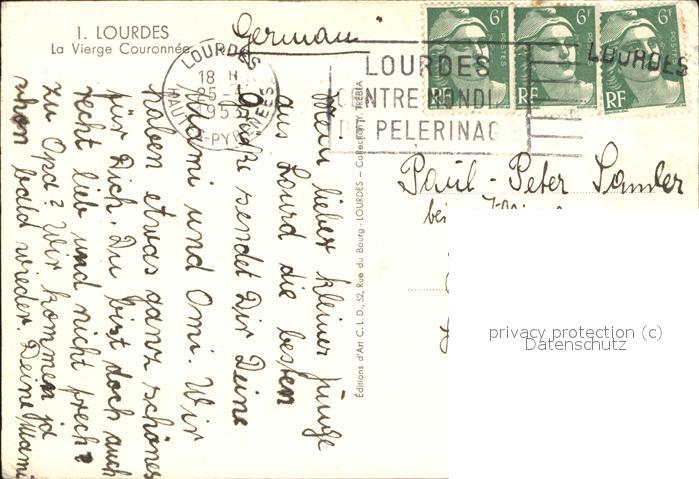 1. LOURDES
La Vierge Couronnée
Germani
LOURDES
18 H
25-
1953
HAUTES-PYRENEES
LOURDES
CENTRE MONDI
DE PELERINAG
LOURDES
6F
POSTES
RF
6F
POSTES
RF
6F
POSTES
RF
Mein lieber kleiner Junge
aus Lourd die besten
Grüße sendet Dir Deine
Mami und Omi. Wir
haben etwas ganz schönes
für Dich. Du bist doch auch
recht lieb und nicht frech?
zu Opa? Wir kommen ja
schon bald wieder. Deine Mami
Éditions d'Art C.L.D., 52, Rue du Bourg - LOURDES - Collection Y. TRÉBLA
Paul-Peter Sander
bei
privacy protection (c)
Datenschutz